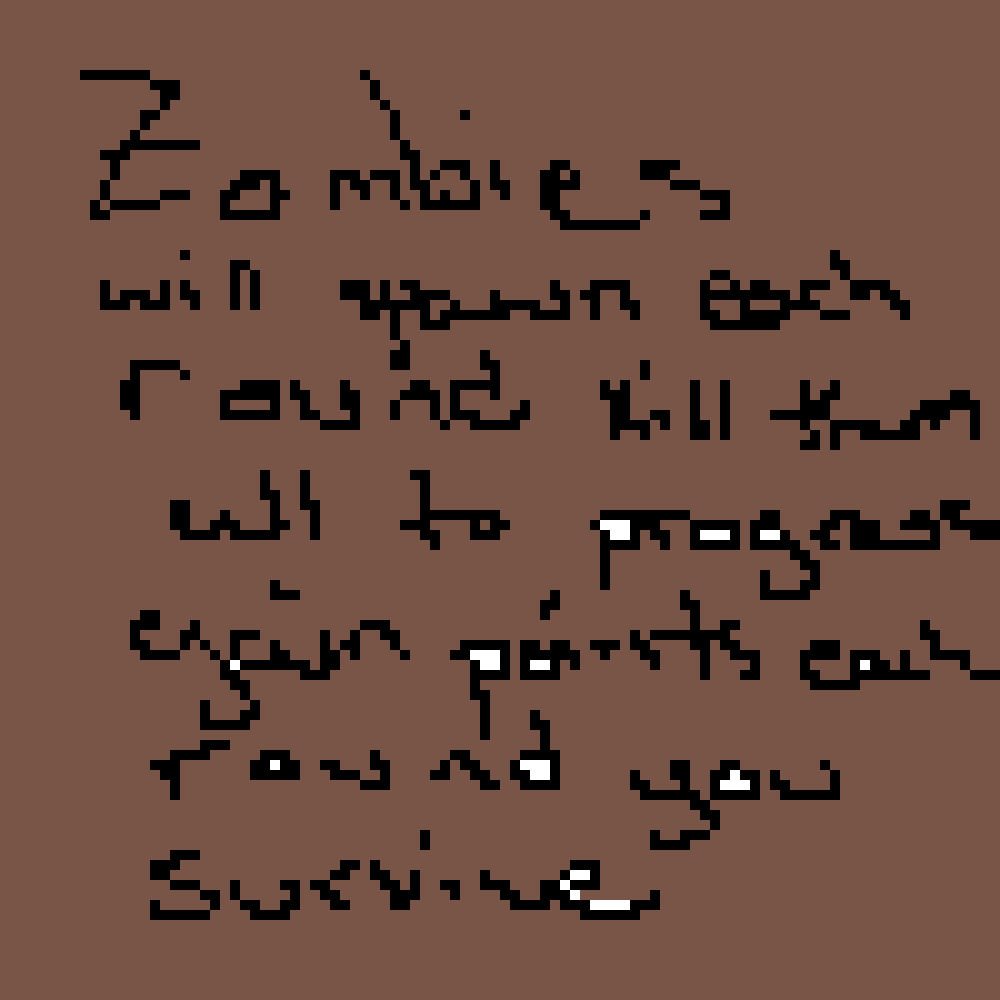 Zombies
will spawn each
round kill them
all to progres
gain points eac
round you
survive